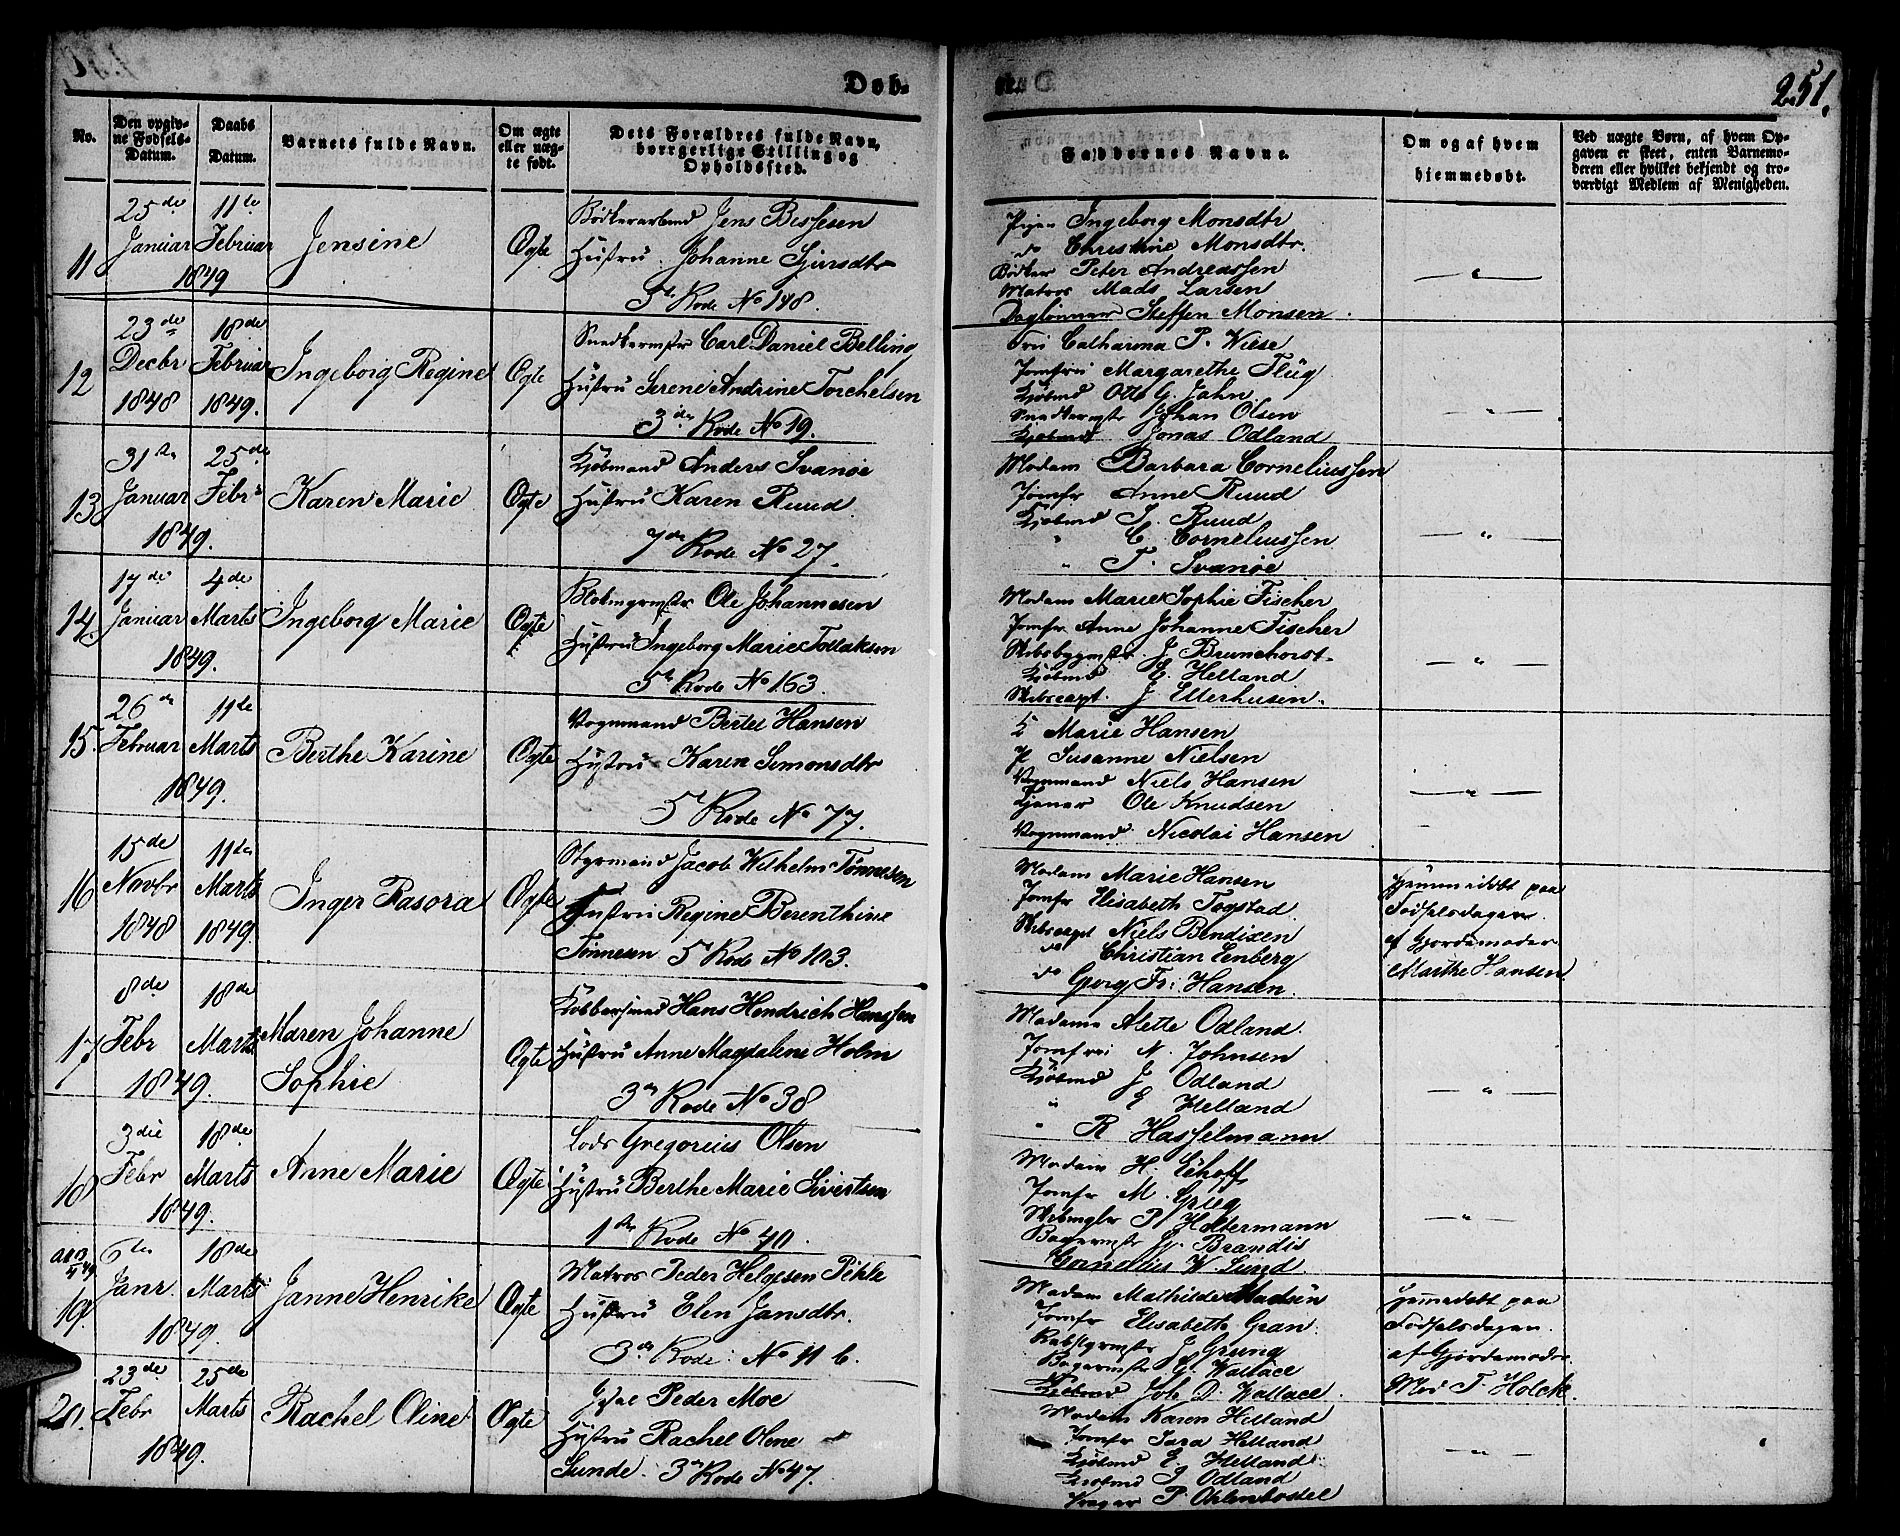 Døb-
251.
No.
Den opgiv-
ne Fødsels-
Datum.
Daabs
Datum.
Barnets fulde Navn.
Om ægte
eller uæg-
te født.
Dets Forældres fulde Navn,
borgerlige Stilling og
Opholdssted.
Faddernes Navne.
Om og af hvem
hjemmedøbt.
Ved uægte Børn, af hvem Op-
gaven er skeet, enten Barnemo-
deren eller hvilket bekjendt og tro-
værdigt Medlem af Menigheden.
11
25de Januar
11te Februar
1849
Jensine
Ægte
Jens Bessesen
Hustru Johanne Sjursdtr
5te Rode No 148.
Pigen Ingeborg Monsdtr
do Christine Monsdtr.
Bødker Peter Andreassen
Matros Mads Larsen
Daglønner Steffen Monsen.
12
23de Decbr 1848
18de Februar 1849.
Ingeborg Regine
Ægte
Snedkermstr Carl Daniel Belling
Hustru Serene Andrine Torchelsen
3de Rode No 19.
Fru Catharina P. Wiese
Jomfru Margarethe Flüg
Kjøbmd Otto G. Jahn
Snedkermstr Johan Olsen
Kjøbmd Jonas Odland
13
31te Januar
25de Febr
1849.
Karen Marie
Ægte
Kjøbmand Anders Svanøe
Hustru Karen Ruud
7de Rode No 27.
Madam Barbara Corneliussen
Jomfr Anne Ruud
Kjøbmd J. Ruud
" C. Corneliussen
" T. Svanøe
14.
17de Januar
4de Marts
1849.
Ingeborg Marie
Ægte
Ole Johannesen
Hustru Ingeborg Marie Tollaksen
5te Rode No 163.
Madam Marie Sophie Fischer
Jomfr Anne Johanne Fischer
Skibsbygmstr J. Brunchorst
Kjøbmd E. Helland
Skibscapt. J Ellerhusen.
15.
26de Februar
11te Marts
1849.
Berthe Karine
Ægte
Vognmand Bertel Hansen
Hustru Karen Simonsdtr
5te Rode No 77.
K Marie Hansen
P Susanne Nielsen
Vognmand Niels Hansen
Tjener Ole Knudsen
Vognmand Nicolai Hansen
16
15de Novbr 1848
11te Marts 1849.
Inger Rasora
Ægte
Styrmand Jacob Wilhelm Tønnesen
Hustru Regine Berenthine
Tønnesen 5te Rode No 103.
Madam Marie Hansen
Jomfr Elisabeth Fogstad
Skibscapt Niels Bendixen
do Christian Lenberg
do Georg Fr: Hansen.
Hjemmedøbt paa
Fødselsdagen
af Gjordemoder
Marthe Hansen
17
8de Febr
18de Marts
1849.
Maren Johanne
Sophie
Ægte
Kobbersmed Hans Hendrich Hanssen
Hustru Anne Magdalene Holm
3de Rode No 38
Madame Alette Odland.
Jomfru N. Johnsen
Kjøbmd J Odland
" E Helland
" R Hasselmann
18
3die Febr
18de Marts
1849.
Anne Marie
Ægte
Lods Gregorius Olsen
Hustru Berthe Marie Sivertsen
1ste Rode No 40.
Madam H. Eihoff
Jomfr M. Grieg
Skibmgler P. Holtermann
Bagermstr G. Brandis
Cornelius W. Sund.
19.
6te Janr.
18de Marts
1849.
Janne Henrike
Ægte
Matros Peder Helgesen Pihle
Hustru Elen Jansdtr.
3de Rode No 11 b.
Madam Mathilde Madsen
Jomfr Elisabeth Gran.
Rebslgrmstr J Grung
Bagermstr G. Wallace
Kjøbmd Joh. D. Wallace.
Hjemedøbt paa
Fødselsdagen
af Gjordemoder
Mad T. Holck.
20.
23de Febr
25de Marts
1849.
Rachel Oline
Ægte
Peder Moe
Hustru Rachel Olene
Sunde. 3de Rode No 47.
Madam Karen Helland
Jomfr Sara Helland
Kjøbmd E. Helland
Kjøbmd J Odland
P. Ohlenbostel